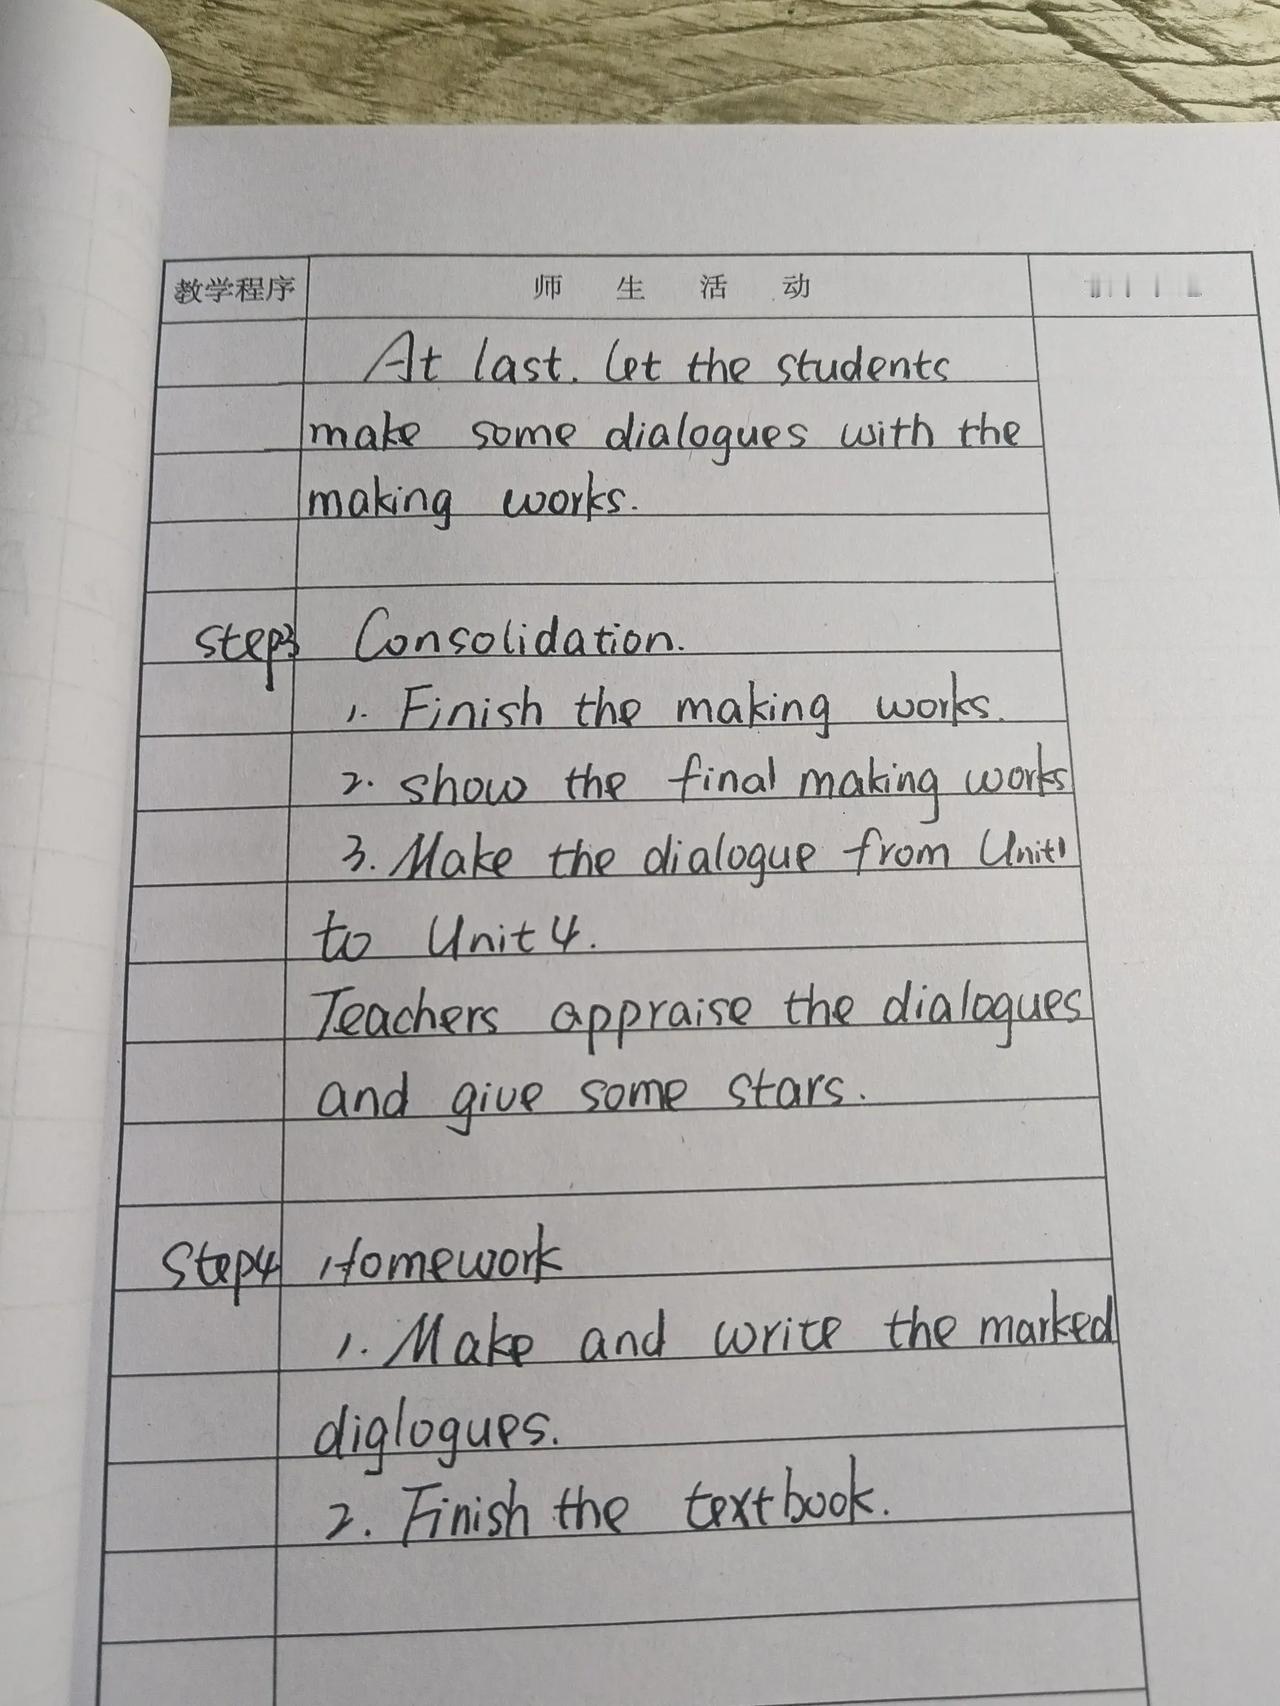 教学程序 师生活动
At last. let the students
make some dialogues with the
making works.
Step3 Consolidation.
1. Finish the making works.
2. show the final making works
3. Make the dialogue from Unit1
to Unit 4.
Teachers appraise the dialogues
and give some stars.
Step4 Homework
1. Make and write the marked
diglogues.
2. Finish the textbook.